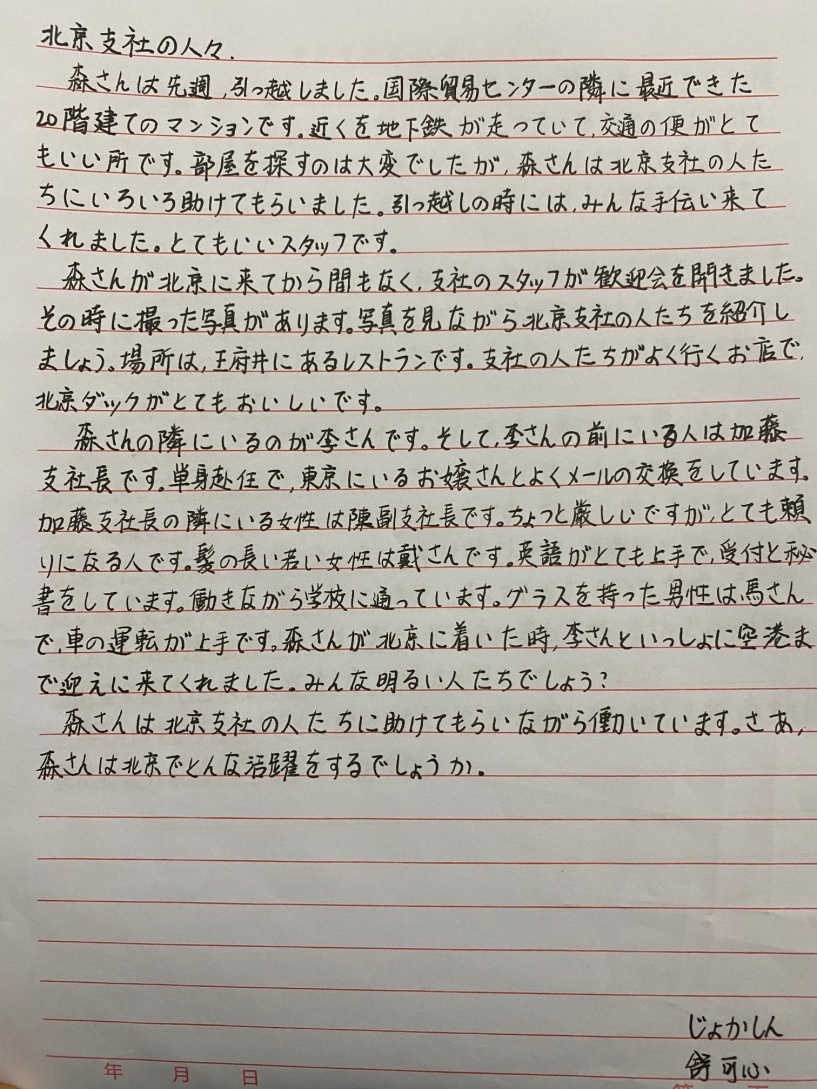 北京支社の人々.
森さんは先週,引っ越しました。国際貿易センターの隣に最近できた
20階建てのマンションです。近くを地下鉄が走っていて,交通の便がとて
もいい所です。部屋を探すのは大変でしたが,森さんは北京支社の人た
ちにいろいろ助けてもらいました。引っ越しの時には,みんな手伝い来て
くれました。とてもいいスタッフです。
森さんが北京に来てから間もなく,支社のスタッフが歓迎会を開きました。
その時に撮った写真があります。写真を見ながら北京支社の人たちを紹介し
ましょう。場所は,王府井にあるレストランです。支社の人たちがよく行くお店で,
北京ダックがとてもおいしいです。
森さんの隣にいるのが李さんです。そして,李さんの前にいる人は加藤
支社長です。単身赴任で,東京にいるお嬢さんとよくメールの交換をしています。
加藤支社長の隣にいる女性は陳副支社長です。ちょっと厳しいですが,とても頼
りになる人です。髪の長い若い女性は戴さんです。英語がとても上手で,受付と秘
書をしています。働きながら学校に通っています。グラスを持った男性は,馬さん
で,車の運転が上手です。森さんが北京に着いた時,李さんといっしょに空港ま
で迎えに来てくれました。みんな明るい人たちでしょう?
森さんは北京支社の人たちに助けてもらいながら働いています。さあ,
森さんは北京でどんな活躍をするでしょうか。
じょかしん
可心
年 月 日